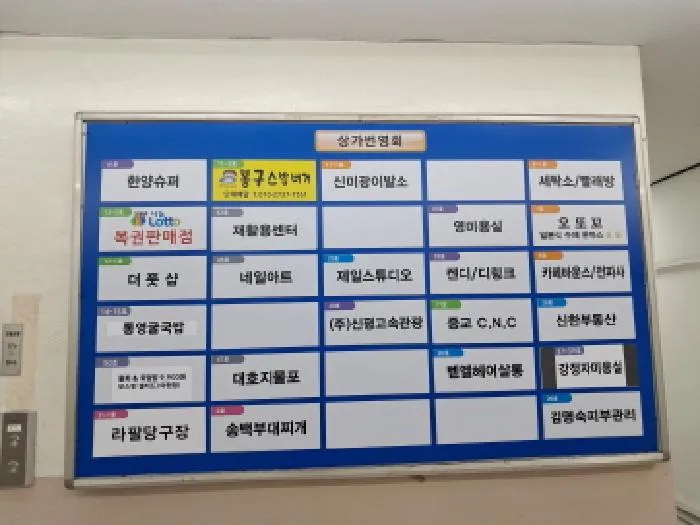 상가번영회
한양슈퍼
봉구스밥버거
신미광이발소
세탁소/빨래방
Lotto
복권판매점
재활용센터
영미용실
오또꼬
더 풋 샵
네일아트
제일스튜디오
렌디/디링크
카페바운스/전파사
통영굴국밥
(주)신평고속관광
중교 C.N.C
신한부동산
대호지물포
벧엘헤어살롱
강정자미용실
라팔당구장
송백부대찌개
김명숙피부관리